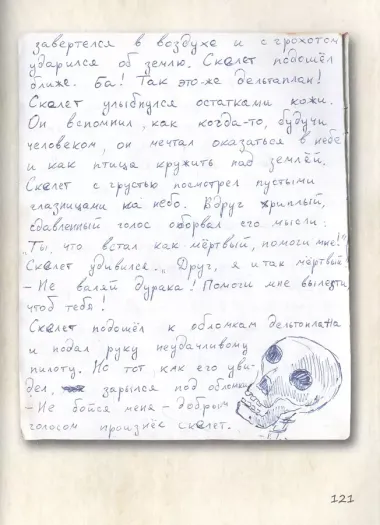 завертелся в воздухе и с грохотом
ударился об землю. Скелет подошёл
ближе. Ба! Так это-же дельтаплан!
Скелет улыбнулся остатками кожи.
Он вспомнил, как когда-то, будучи
человеком, он мечтал оказаться в небе
и как птица кружить над землёй.
Скелет с грустью посмотрел пустыми
глазницами на небо. Вдруг хриплый,
сдавленный голос оборвал его мысли:
„Ты, что встал как мёртвый, помоги мне!"
Скелет удивился. „Друг, я и так мёртвый
- Не валяй дурака! Помоги мне вылезти,
чтоб тебя!
Скелет подошёл к обломкам дельтоплана
и подал руку неудачливому
пилоту. Но тот как его уви-
дел, зарылся под обломки
- Не бойся меня - добрым
голосом произнёс скелет.
121